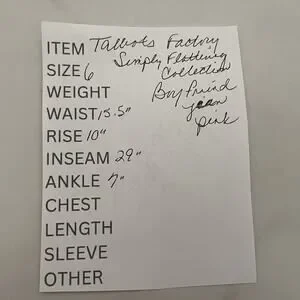 ITEM Talbots Factory
Simply Flattering
SIZE 6 Collection
WEIGHT Boyfriend
WAIST 15.5" jean
RISE 10" pink
INSEAM 29"
ANKLE 7"
CHEST
LENGTH
SLEEVE
OTHER